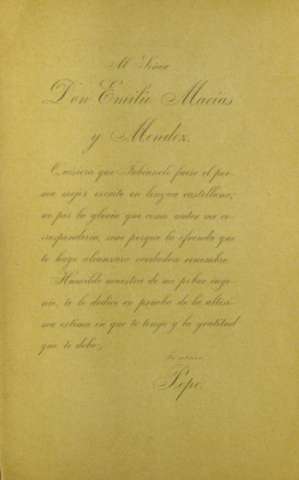 Al Señor
Don Emilio Macías
y Mendez.
Quisiera que Fabianelo fuese el poe-
ma mejor escrito en lengua castellana;
no por la gloria que como autor me co-
rrespondería, sino porque la ofrenda que
te hago alcanzara verdadero renombre.
Humilde muestra de mi pobre inge-
nio, te lo dedico en prueba de la altísi-
ma estima en que te tengo y la gratitud
que te debo,
Pepe.